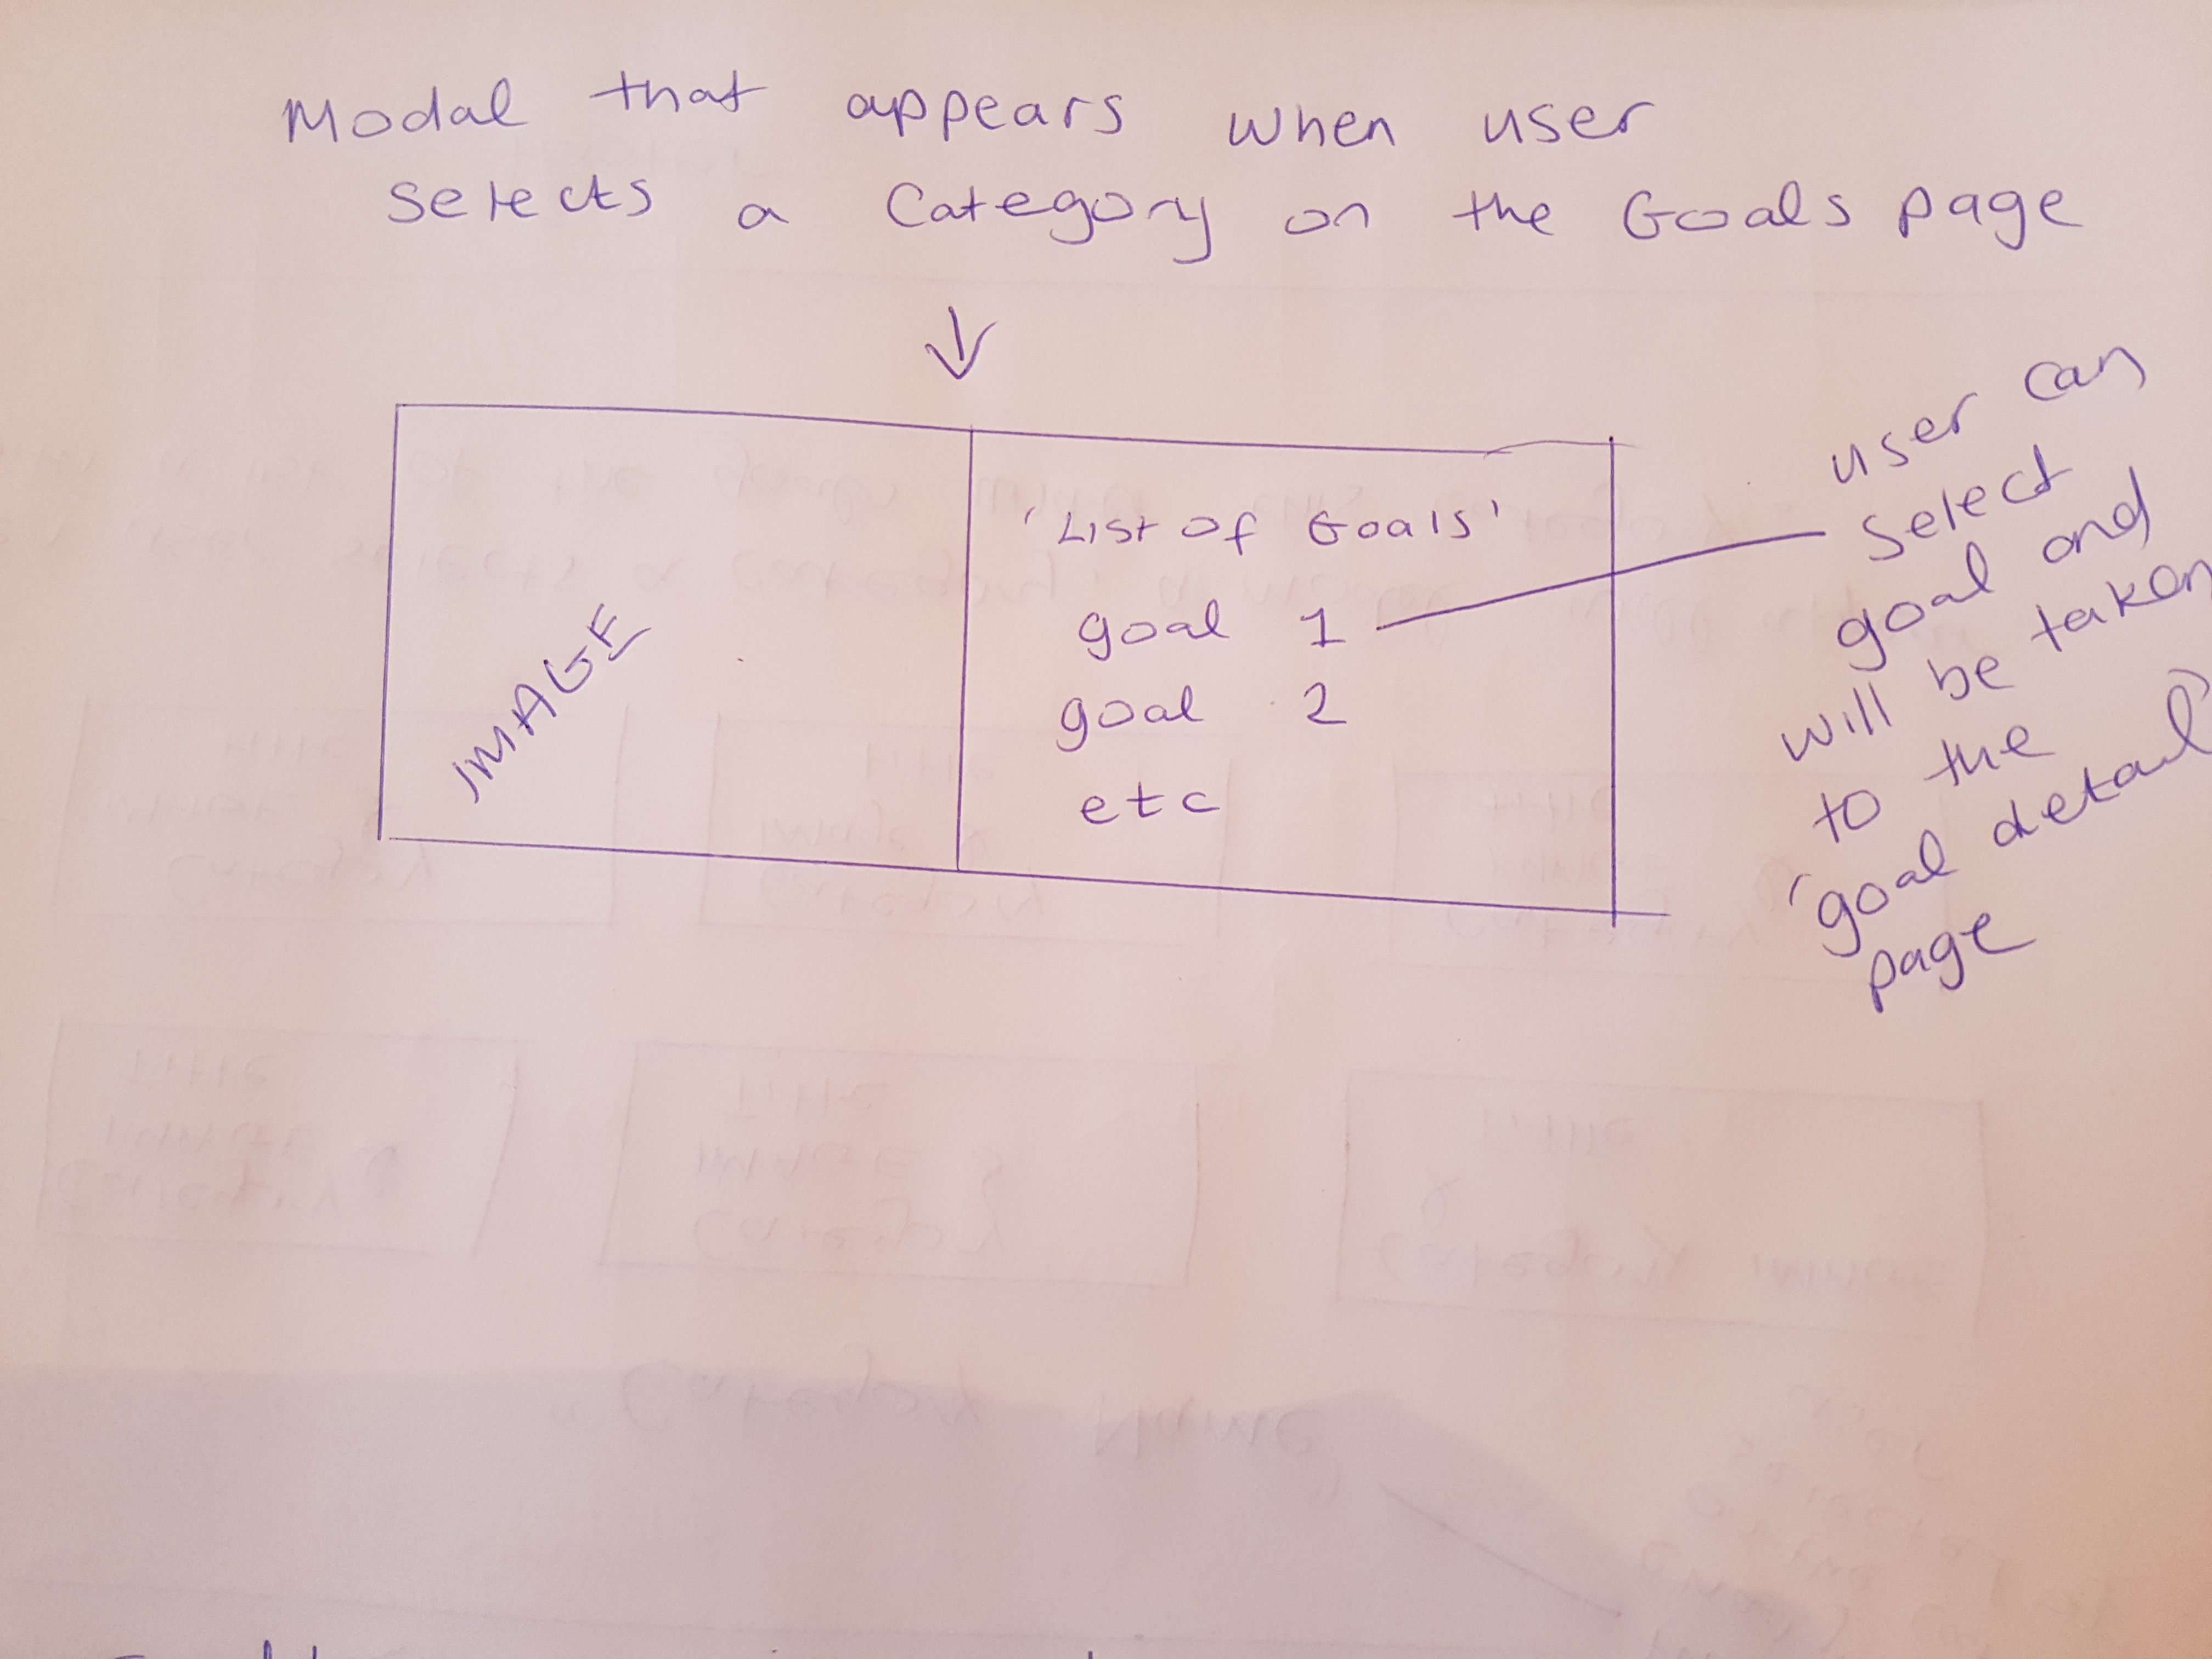 Modal that appears when user
selects a Category on the Goals page
IMAGE
'List of Goals'
goal 1
goal 2
etc
user can
select
goal and
will be taken
to the
'goal detail'
page